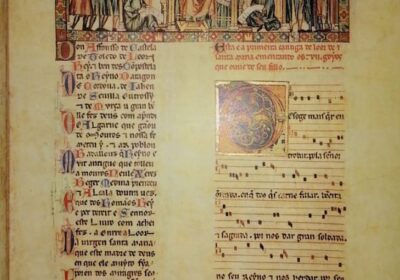 Don Affonsso de Castela
de Toledo de Leon
Rey e ben des Conpostela
ta o Reyno daragon
De Cordoua de Jahen
de Seuilla e outrossi
de Murça u gran ben
lle fez deus com aprendi
do Algarue que gãou
de mouros e nossa fe
meteu y e ar pobrou
Badallouz que Reyno e
muit antigue que tolleu
a mouros Neul e Xerez
Beger Medina prendeu
e Alcala doutra uez
que dos Romãos Rey
e per dereit e Sennor
este liuro com achei
fez a onrr e a loor
da uirgen santa maria
que este madre de deus
en que ele muito fia
poren dos miragres seus
Esta e a primeira cantiga de loor de
santa maria ementando os .vii. goyos
que ouue de seu fillo.
Des oge mais quer eu
trobar pola sennor
onrrada. en que deus quis carne fillar. bẽeyta
e sagrada. por nos dar gran soldada.
no seu Reyno e nos erdar por seus